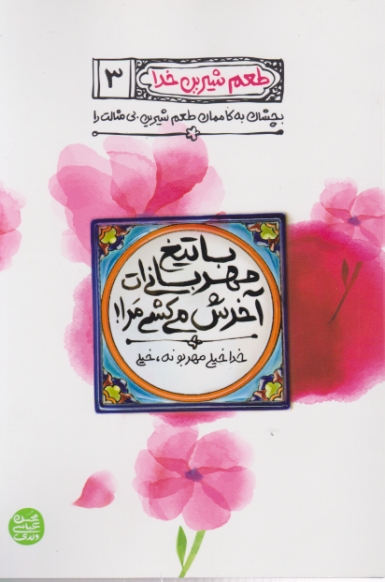 طعم شیرین خدا ۳
بچشان به کاممان طعم شیرین بی مثالت را
با تیغ
مهربانی‌ات
آخرش می‌کشی مرا!
خدا خیلی مهربونه، خیلی
محسن
عباسی
ولدی